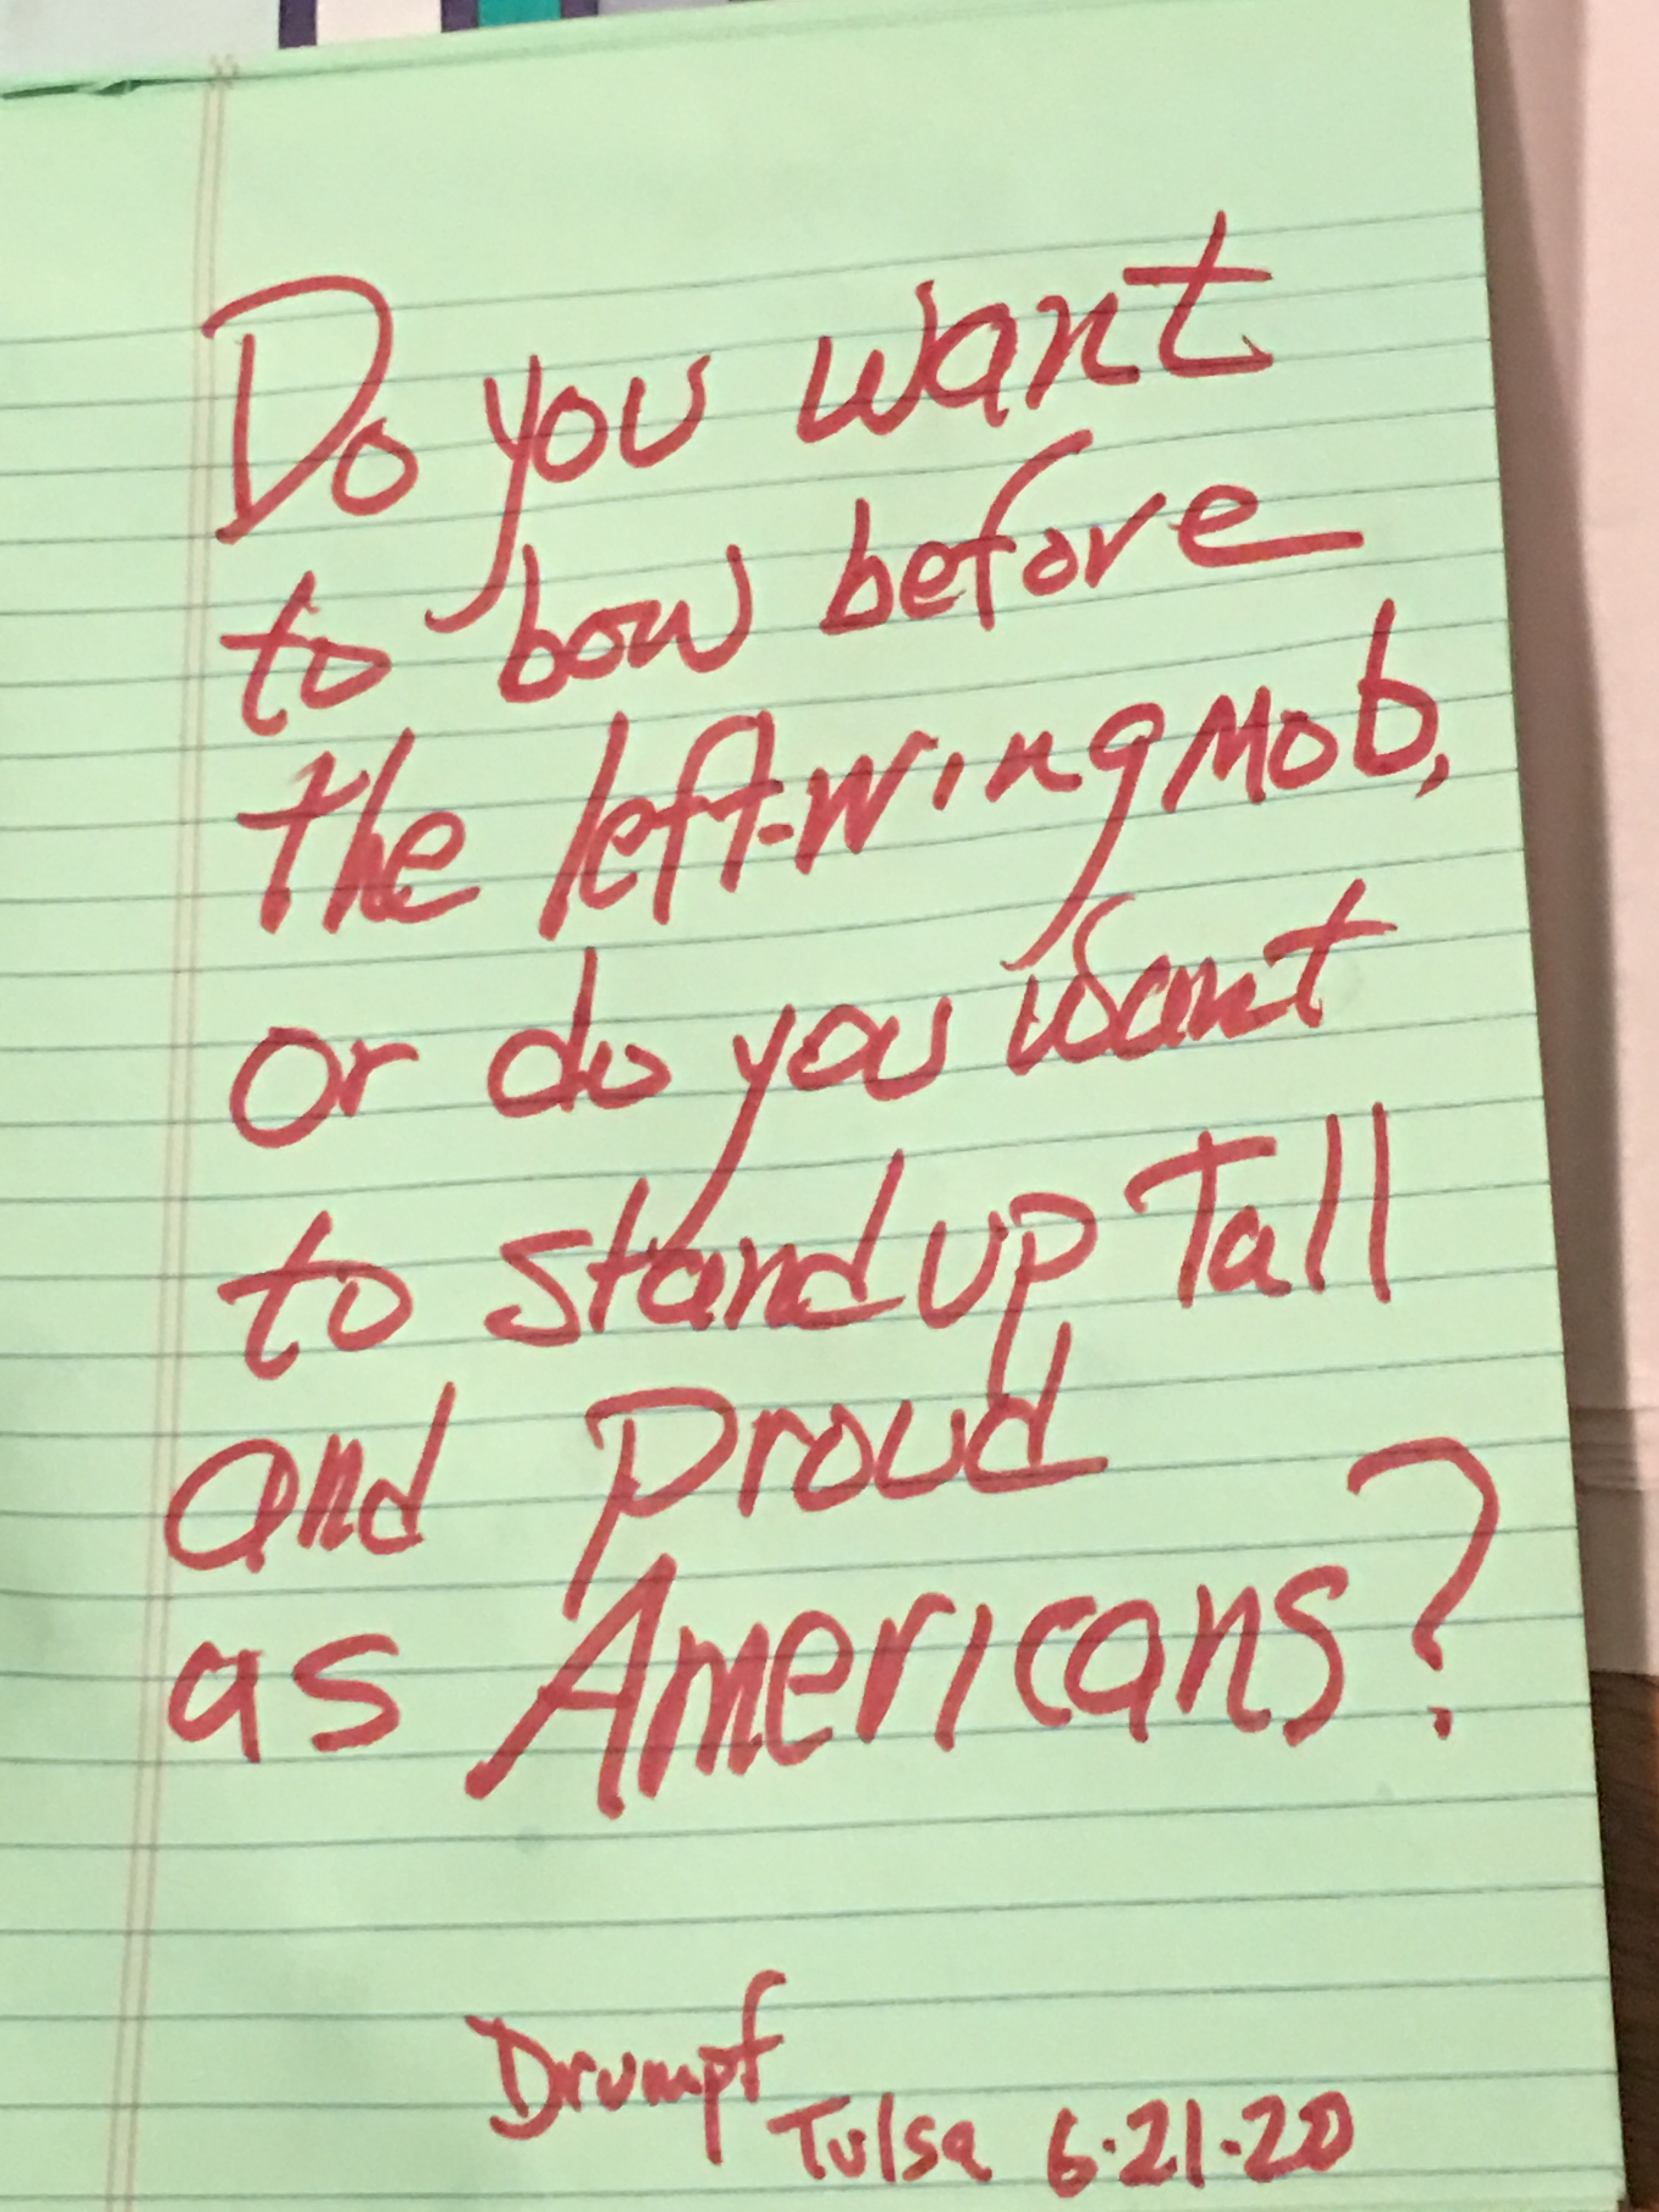 Do you want
to bow before
the left-wing mob,
or do you want
to stand up Tall
and Proud
as Americans?
Drumpf
Tulsa 6.21.20